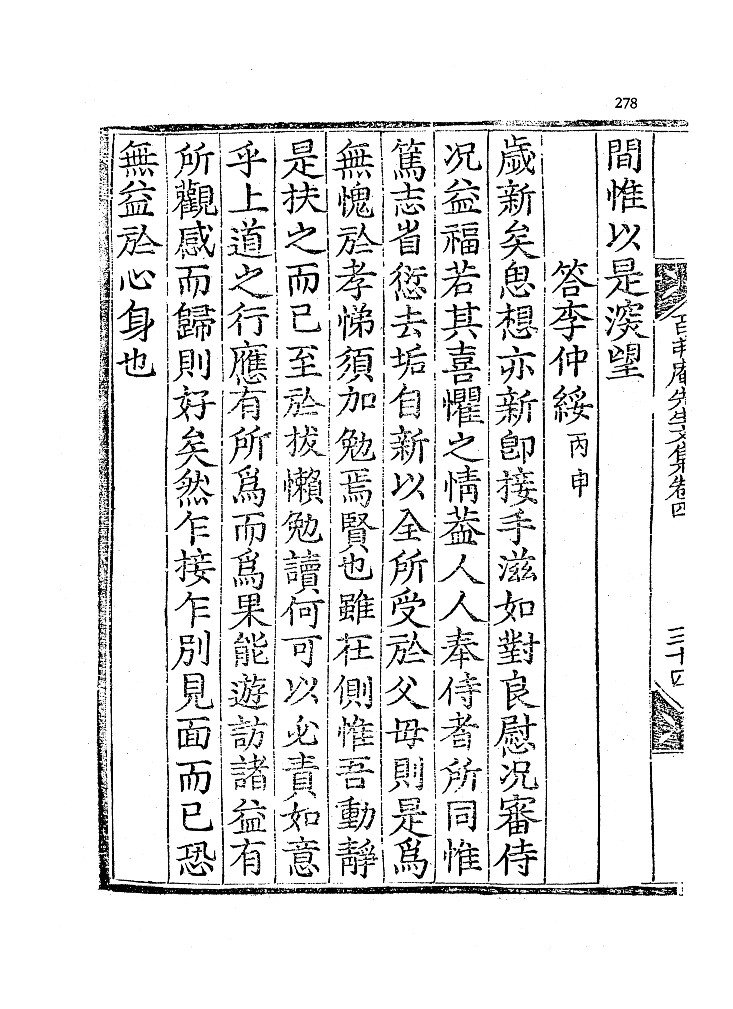 278
百弗庵先生文集卷四
三十四
間惟以是㴱望
答李仲綏 丙申
歲新矣思想亦新卽接手滋如對良慰况審侍
况益福若其喜懼之情葢人人奉侍者所同惟
篤志省愆去垢自新以全所受於父母則是爲
無愧於孝悌須加勉焉賢也雖在側惟吾動靜
是扶之而已至於拔懶勉讀何可以必責如意
乎上道之行應有所爲而爲果能遊訪諸益有
所觀感而歸則好矣然乍接乍別見面而已恐
無益於心身也